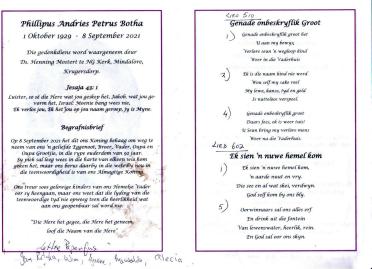 Phillipus Andries Petrus Botha
1 Oktober 1929 - 8 September 2021
Die gedenkdiens word waargeneem deur
Ds. Henning Mostert te NG Kerk, Mindalore,
Krugersdorp.
Jesaja 43: 1
Luister, so sê die Here wat jou geskep het, Jakob, wat jou ge-
vorm het, Israel: Moenie bang wees nie,
Ek verlos jou, Ek het jou op jou naam geroep, jy is Myne.
Begrafnisbrief
Op 8 September 2021 het dit ons Koning behaag om weg te
neem van ons 'n geliefde Eggenoot, Broer, Vader, Oupa en
Oupa Grootjie, in die rype ouderdom van 91 jaar.
Sy plek sal leeg wees in die harte van elkeen wie hom
geken het, maar ons berus daarby in die wete dat hy in
die teenwoordigheid is van ons Almagtige Koning.
Ons treur soos gelowige kinders van ons Hemelse Vader
oor sy heengaan, maar ons weet dat die lyding van die
teenwoordige tyd nie opweeg teen die heerlikheid wat
aan ons geopenbaar sal word nie.
"Die Here het gegee, die Here het geneem
loof die Naam van die Here"
Lettie
Jan, Wim, Alecia
LIED 510
Genade onbeskryflik Groot
1) Genade onbeskryflik groot
U aan my bewys,
Verlore seun 'n wegloop kind
Weer in die Vaderhuis
2) Ek is die naam kind nie werd
Wou self my sake reël
My lewe, dankie, tyd en geld
Is nutteloos verspeel.
4) Genade onbeskryflik groot
Daar's fees, ek is weer tuis!
U Seun bring my verlore mens
Weer na die Vaderhuis.
LIED 602
Ek sien 'n nuwe hemel kom
1) Ek sien 'n nuwe hemel kom,
'n aarde nuut en vry.
Die see en al wat skei, verdwyn,
God self kom by ons bly.
5) Oorwinnaars sal ons alles erf
En drink uit die fontein
Van lewenswater, heerlik, rein.
En God sal oor ons skyn.